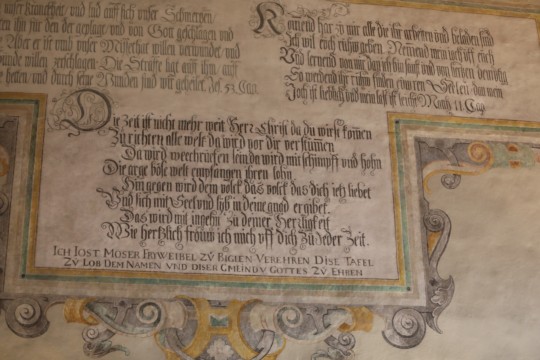 unser Kranckheit, und lud auff sich unser Schmertzen,
wir ihn für den der geplagt und von Gott geschlagen und
Aber er ist umb unser Missethat willen verwundet, und
unde willen zerschlagen. Die Straffe ligt auff ihm, auff
hetten, und durch seine Wunden sind wir geheilet. Jes. 53 Cap.
Kommend har zu mir alle die ihr arbeiten und beladen sind
Ich wil euch rühwig machen. Nemmend mein joch uff euch
Und lernend von mir dan ich bin sanft und von herzen demütig
So werdend ihr ruhw finden euweren Seelen. dan mein
Joch ist lieblich und mein last ist leicht. Math. 11 Cap
Die Zeit ist nicht mehr weit Herr Christ da du wirst komen
Zu richten alle welt da wird vor dir verstumen
Da wird verschrecken sein da wird mit schimpff und hohn
Die arge böse welt empfangen ihren lohn
Hin gegen wird dem volck das volck das dich jetz liebet
Und sich mit Seel und lyb in deine gnad ergibet.
Das wird mit ingehn zu deiner Herrligkeit
Wie hertzlich frouw ich mich uff dich zu jeder Zeit.
ICH IOST MOSER FRYWEIBEL ZŮ BIGLEN VEREHREN DISE TAFEL
ZŮ LOB DEM NAMEN VND DISER GMEIND V GOTTES ZŮ EHREN